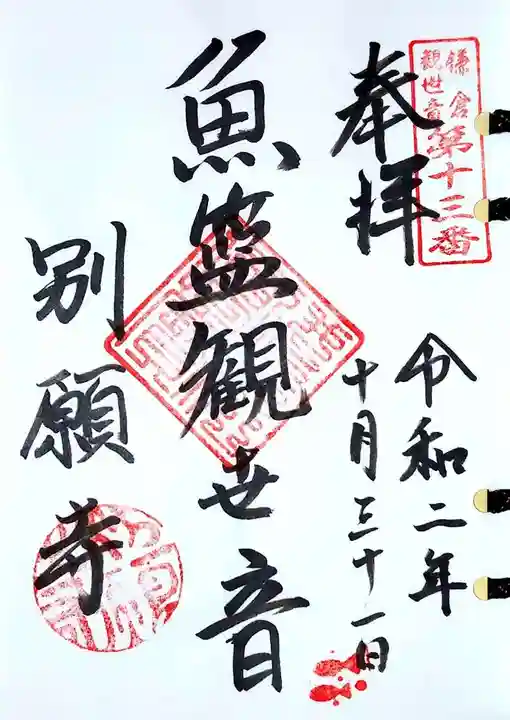 鎌倉
観世音第十三番
奉拝
令和二年
十月三十一日
魚籃観世音
別願寺